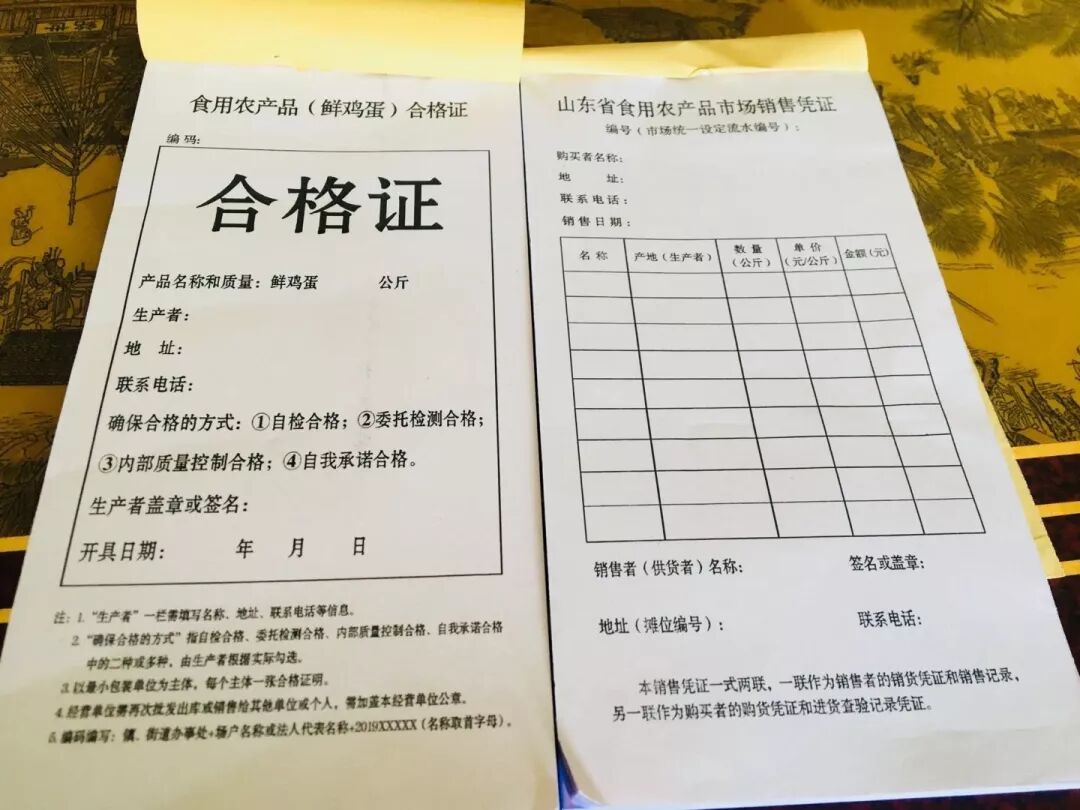 食用农产品（鲜鸡蛋）合格证
编码:
合格证
产品名称和质量：鲜鸡蛋 公斤
生产者：
地 址：
联系电话：
确保合格的方式：①自检合格；②委托检测合格；
③内部质量控制合格；④自我承诺合格。
生产者盖章或签名：
开具日期： 年 月 日
注：1.“生产者”一栏需填写名称、地址、联系电话等信息。
2.“确保合格的方式”指自检合格、委托检测合格、内部质量控制合格、自我承诺合格
中的二种或多种，由生产者根据实际勾选。
3.以最小包装单位为主体，每个主体一张合格证明。
4.经营单位需再次批发出库或销售给其他单位或个人，需加盖本经营单位公章。
5.编码编写：镇、街道办事处+场户名称或法人代表名称+2019XXXXX（名称取首字母）。
山东省食用农产品市场销售凭证
编号（市场统一设定流水编号）：
购买者名称：
地 址：
联系电话：
销售日期：
名称 产地（生产者） 数量 单价 金额(元)
（公斤） (元/公斤)
销售者（供货者）名称： 签名或盖章：
地址（摊位编号）： 联系电话：
本销售凭证一式两联，一联作为销售者的销货凭证和销售记录，
另一联作为购买者的购货凭证和进货查验记录凭证。